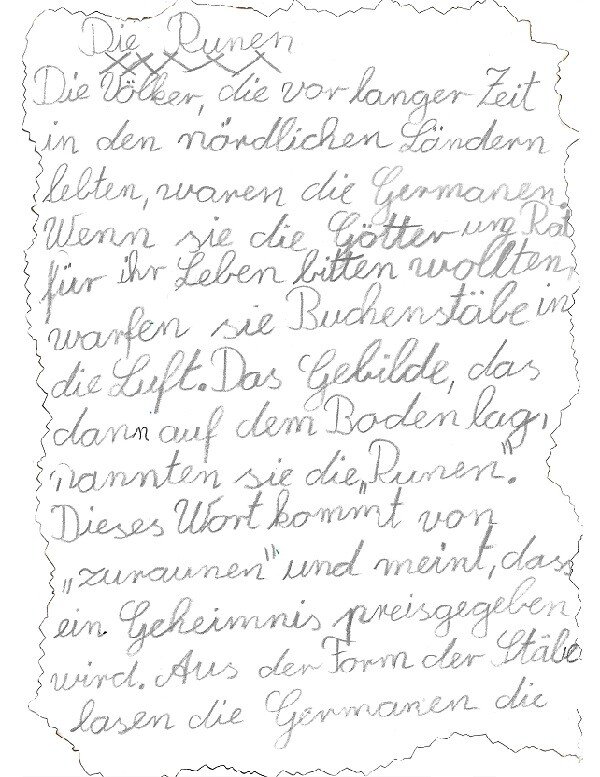 Die Runen
Die Völker, die vor langer Zeit
in den nördlichen Ländern
lebten, waren die Germanen.
Wenn sie die Götter um Rat
für ihr Leben bitten wollten,
warfen sie Buchenstäbe in
die Luft. Das Gebilde, das
dann auf dem Boden lag,
nannten sie die „Runen".
Dieses Wort kommt von
„zuraunen" und meint, dass
ein Geheimnis preisgegeben
wird. Aus der Form der Stäbe
lasen die Germanen die